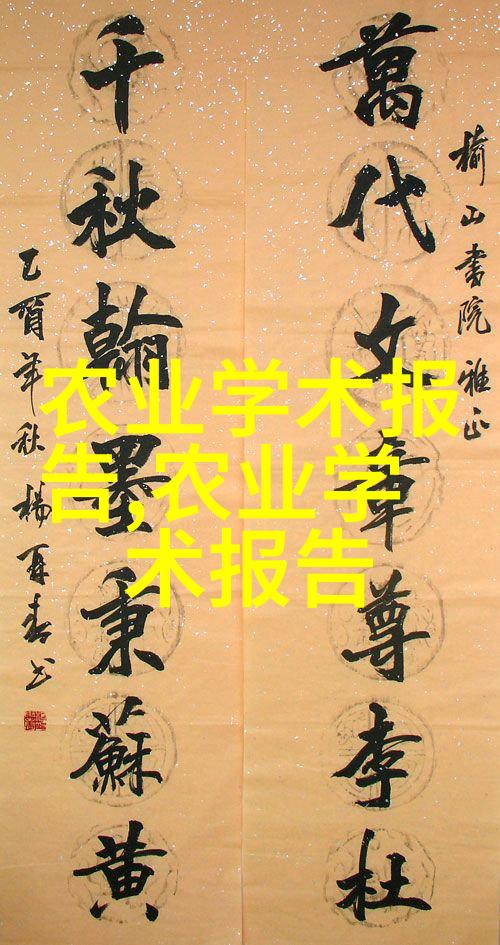 榆山書院雅正
萬代文章尊李杜
千秋翰墨秉蘇黄
乙酉年秋楊再春书
农业学术报
告,农业学
术报告